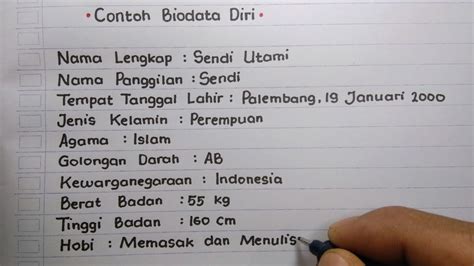 • Contoh Biodata Diri •
Nama Lengkap : Sendi Utami
Nama Panggilan : Sendi
Tempat Tanggal Lahir : Palembang, 19 Januari 2000
Jenis Kelamin : Perempuan
Agama : Islam
Golongan Darah : AB
Kewarganegaraan : Indonesia
Berat Badan : 55 kg
Tinggi Badan : 160 cm
Hobi : Memasak dan Menulis